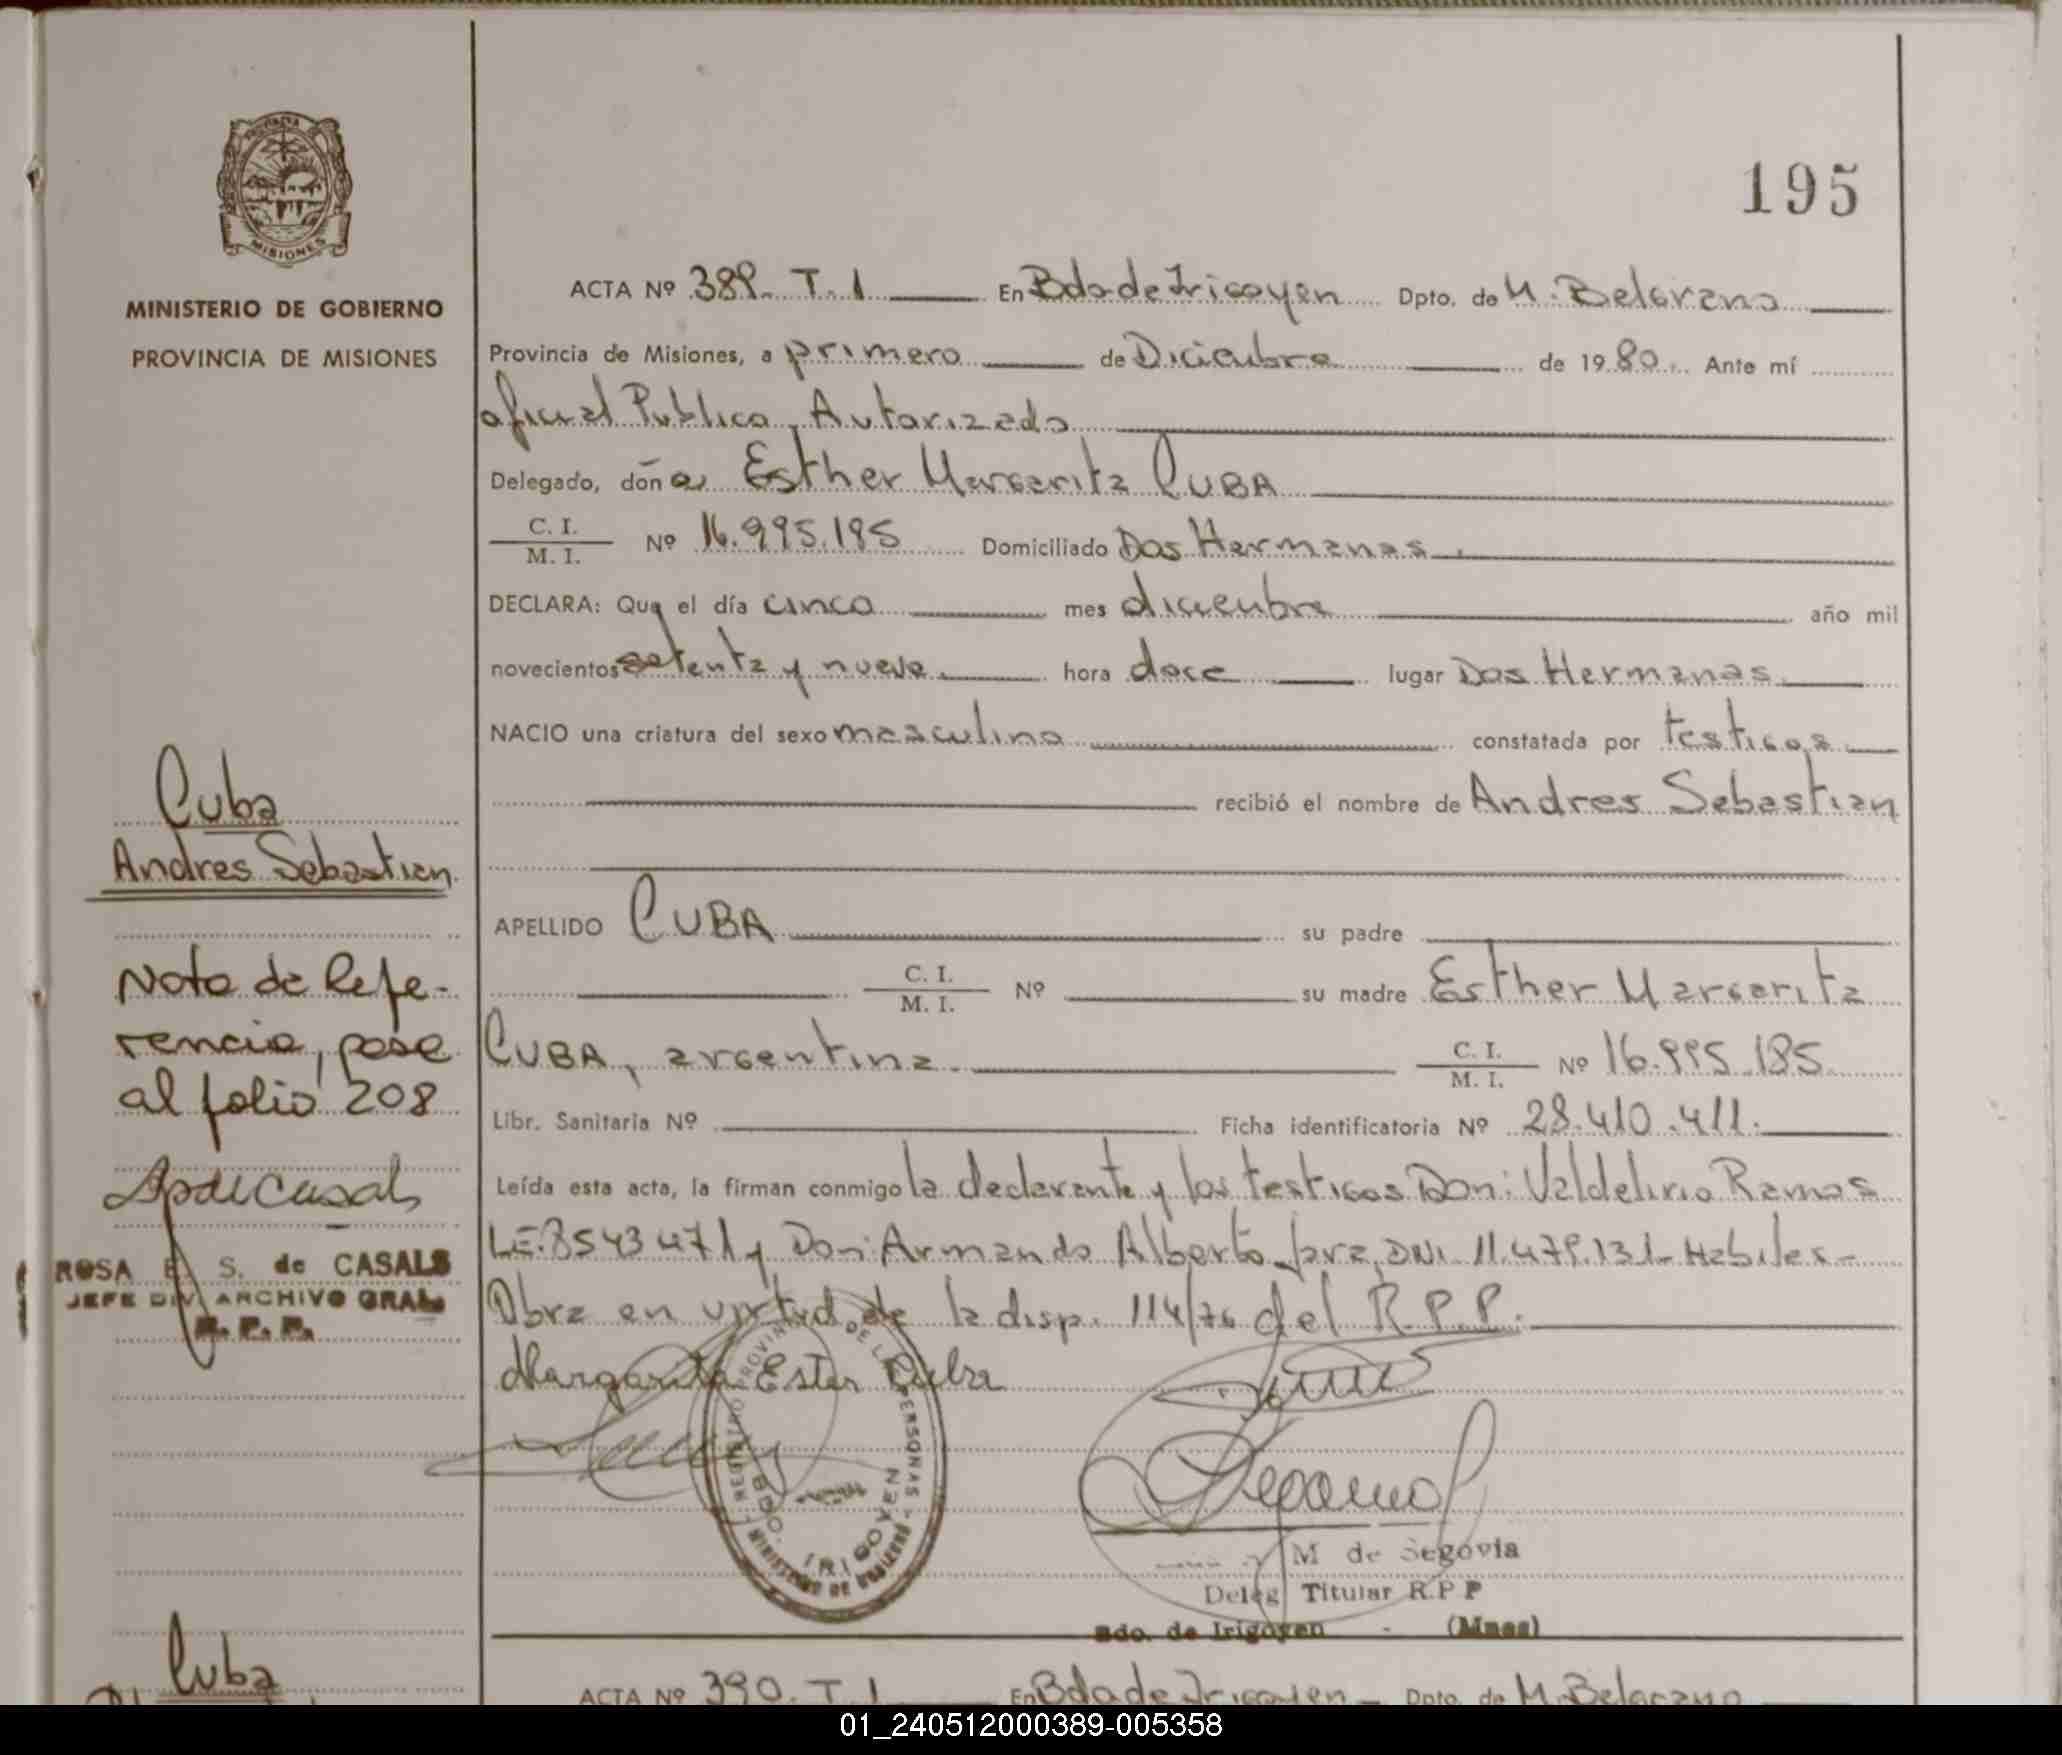 195
PROVINCIA
MISIONES
MINISTERIO DE GOBIERNO
PROVINCIA DE MISIONES
ACTA Nº 389. T. 1 En Bdo de Irigoyen Dpto. de M. Belgrano
Provincia de Misiones, a primero de Diciembre de 1980. Ante mí
oficial Publico Autorizado
Delegado, doña Esther Margarita CUBA
C. I.
M. I. Nº 16.995.185 Domiciliado Dos Hermanas.
DECLARA: Que el día cinco mes diciembre año mil
novecientos setenta y nueve. hora doce lugar Dos Hermanas.
NACIO una criatura del sexo masculino constatada por testigos
recibió el nombre de Andres Sebastian
APELLIDO CUBA su padre
C. I.
M. I. Nº su madre Esther Margarita
CUBA, argentina. C. I.
M. I. Nº 16.995.185.
Libr. Sanitaria Nº Ficha identificatoria Nº 28.410.411.
Leída esta acta, la firman conmigo la declarante y los testigos Don: Valdelirio Ramos
LE. 8543471 y Don: Armando Alberto Jara, DNI. 11.479.131- Habiles-
Obra en virtud de la disp. 114/76 del R.P.P.
Margarita Ester Cuba
REGISTRO PROVINCIAL DE LAS PERSONAS
BDO. IRIGOYEN
MINISTERIO DE GOBIERNO
M de Segovia
Deleg Titular R.P P
Bdo. de Irigoyen - (Mnes)
Cuba
Andres Sebastian.
Nota de Refe-
rencia, pase
al folio 208
ROSA E. S. de CASALS
JEFE DIV. ARCHIVO GRAL.
R. P. P.
Cuba
ACTA Nº 390. T. 1 En Bdo de Irigoyen Dpto. de M. Belgrano
01_240512000389-005358